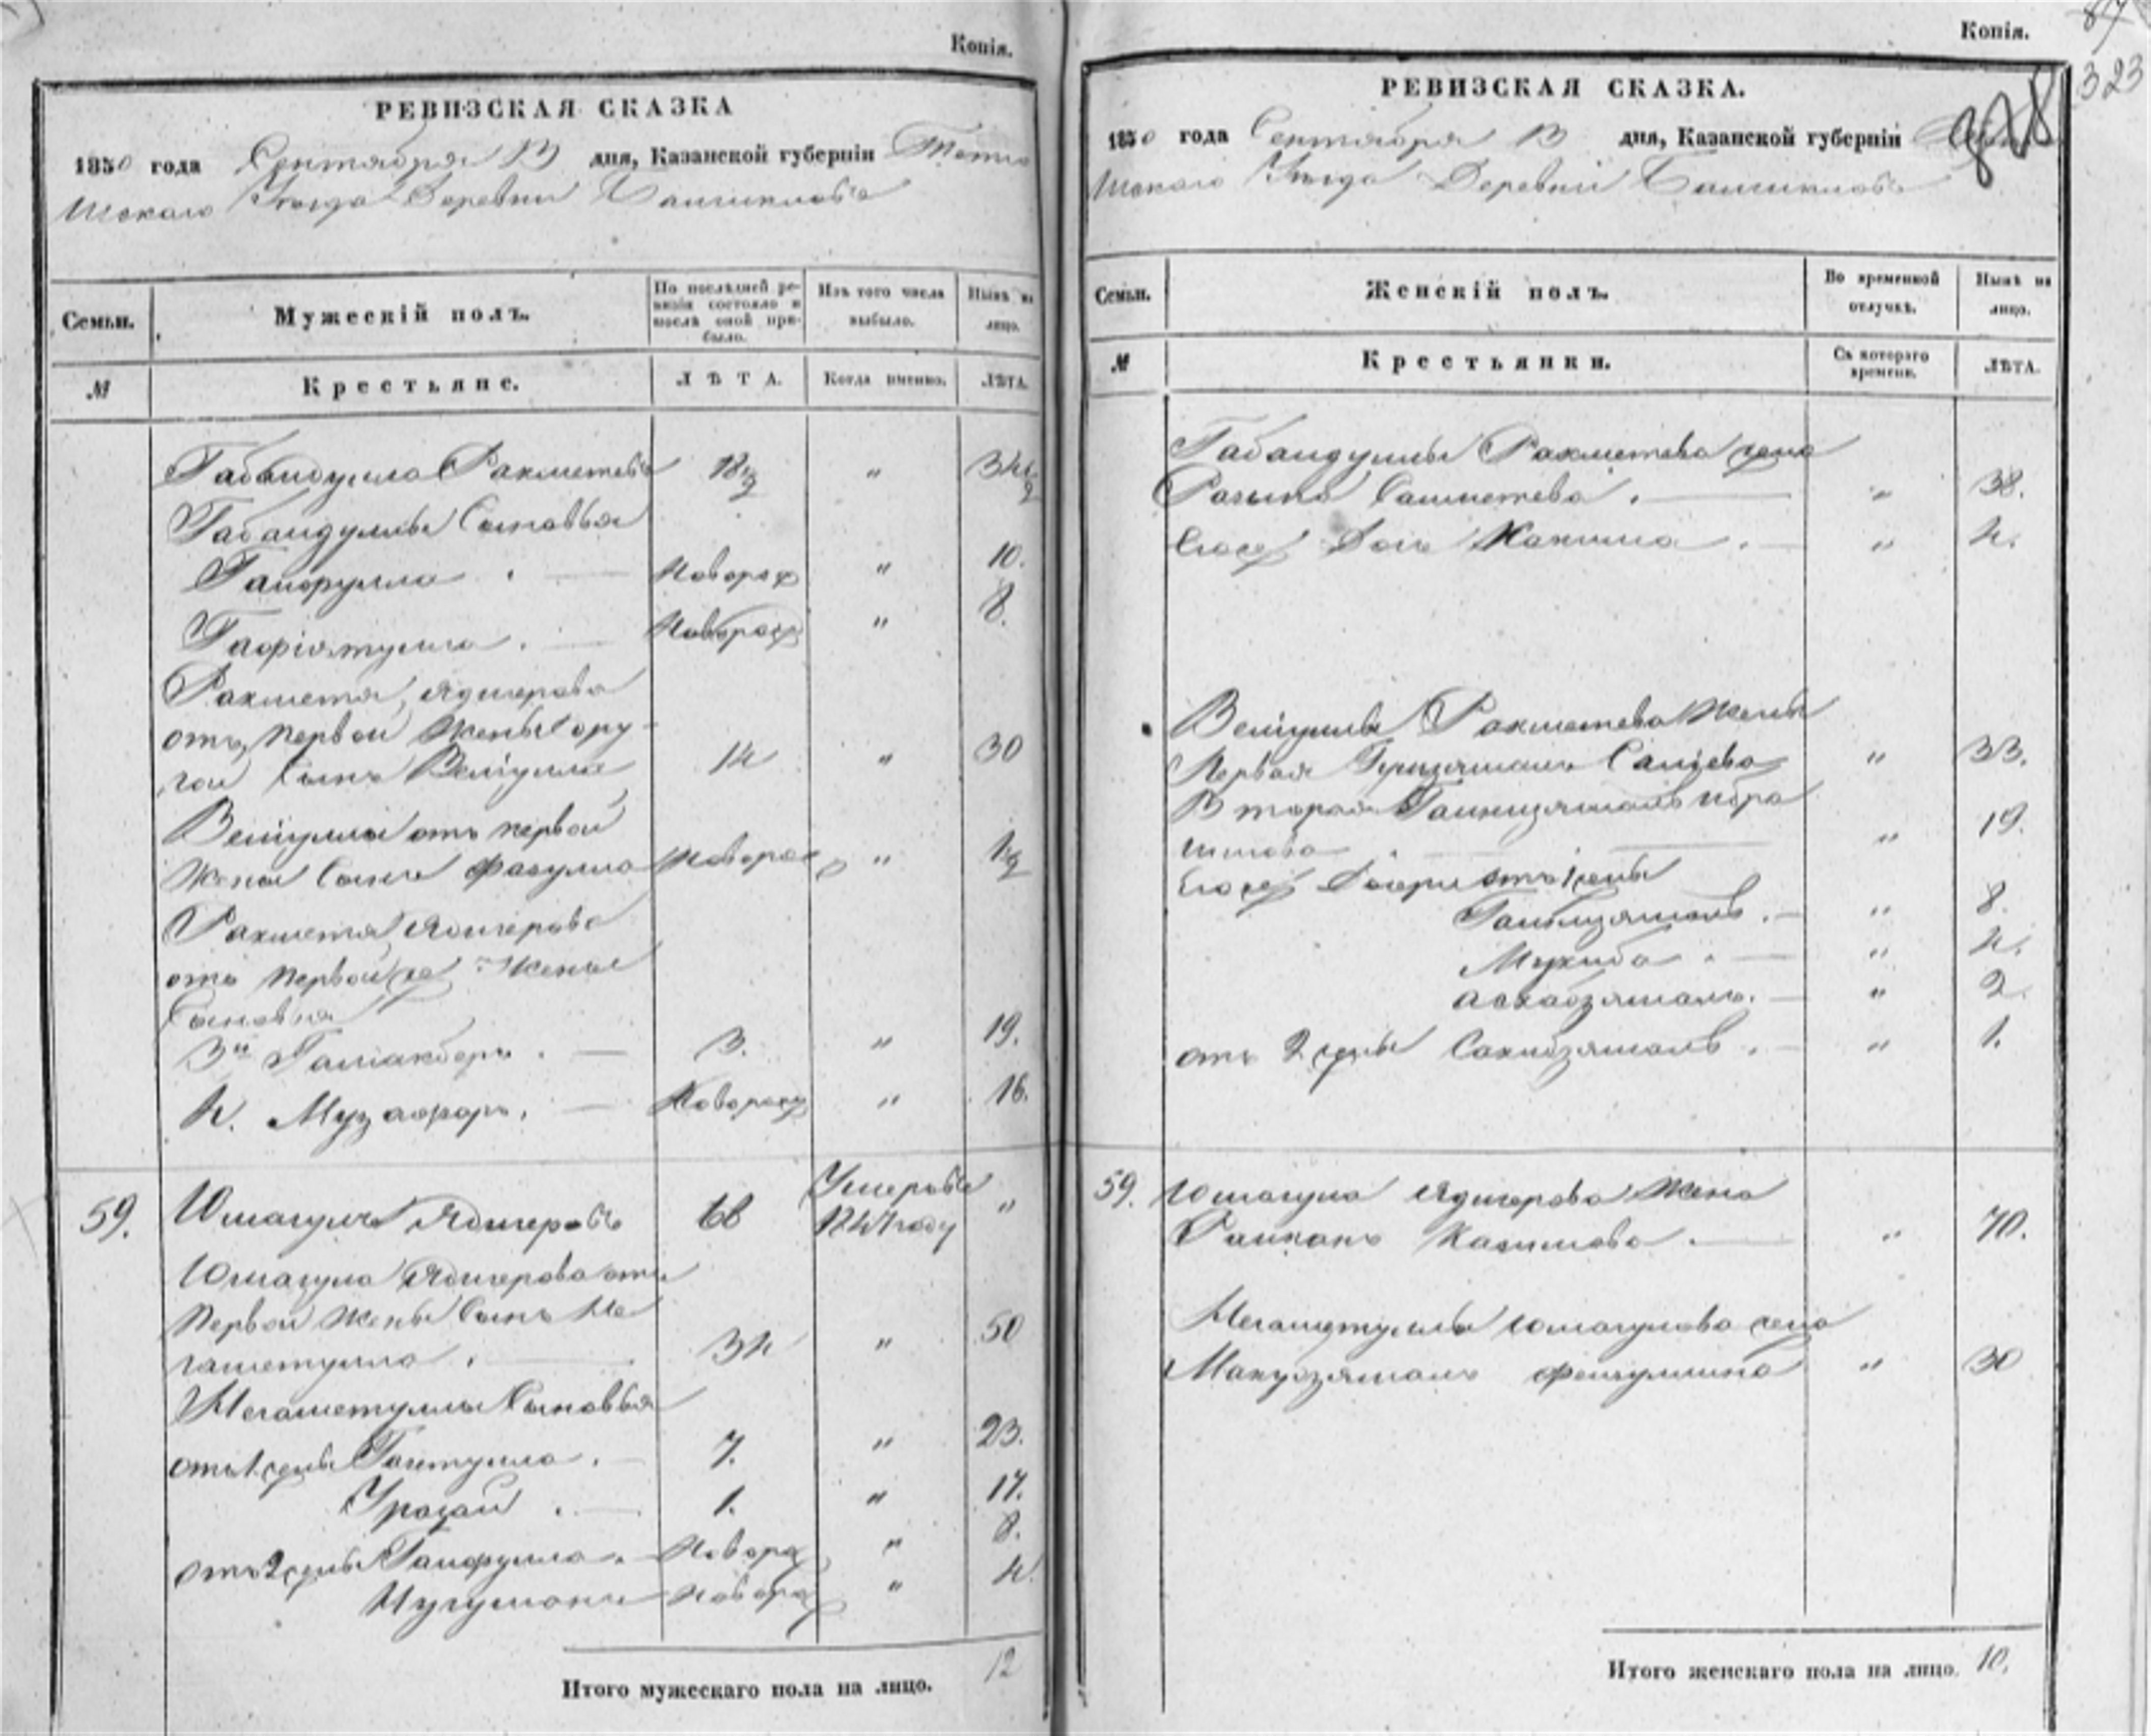 Копія.
РЕВИЗСКАЯ СКАЗКА
1850 года Сентября 13 дня, Казанской губерніи Тетю
шскаго Уѣзда Деревни
Семьи. Мужескій полъ. По послѣдней ре-
визіи состояло и
послѣ оной при-
было. Изъ того числа
выбыло. Нынѣ на
лицо.
№ Крестьяне. ЛѢТА. Когда именно. ЛѢТА.
Габайдулла Рахметевъ 18 1/2 " 34 1/2
Габайдуллы Сыновья
Гайфулла . — Новорож " 10.
Гафіятулла . — Новорож " 8.
Рахметя Ядигерова
отъ первой жены дру-
гой сынъ Велиулла 14 " 30
Велиуллы отъ первой
жены сынъ Фазулла Новорож " 1/2
Рахметя Ядигерова
отъ первой же жены
Сыновья
3й Галіакберъ . — 3. " 19.
4. Музафаръ . — Новорож " 16.
59. Юмагулъ Ядигеровъ 66 Умеръ въ
1841 году "
Юмагула Ядигерова отъ
первой жены сынъ Не
гаметулла . — 34 " 50
Негаметуллы Сыновья
отъ 1. жены Гаетулла . — 7. " 23.
Уразай . — 1. " 17.
отъ 2 жены Гайфулла . Новорож " 8.
Нугуманъ Новорож " 4.
Итого мужескаго пола на лицо. 12
Копія.
323
РЕВИЗСКАЯ СКАЗКА.
1850 года Сентября 13 дня, Казанской губерніи
шскаго Уѣзда Деревни
Семьи. Женскій полъ. Во временной
отлучкѣ. Нынѣ на
лицо.
№ Крестьянки. Съ котораго
времени. ЛѢТА.
Габайдуллы Рахметева жена
Разыпа Сашметева . — " 38.
Его же дочь Хакима . — " 4.
Велиуллы Рахметева жены
Первая Саліева " 33.
Вторая Ибра
гимова . — " 19.
Его же дочери отъ 1 жены
" 8.
Мухиба . — " 4.
Асхабзямалъ . — " 2.
отъ 2 жены Сахибзямалъ . — " 1.
59. Юмагула Ядигерова жена
Райхана Касимова . — " 70.
Негаметуллы Юмагулова жена
Махубзямалъ Фейзуллина " 30
Итого женскаго пола на лицо. 10.